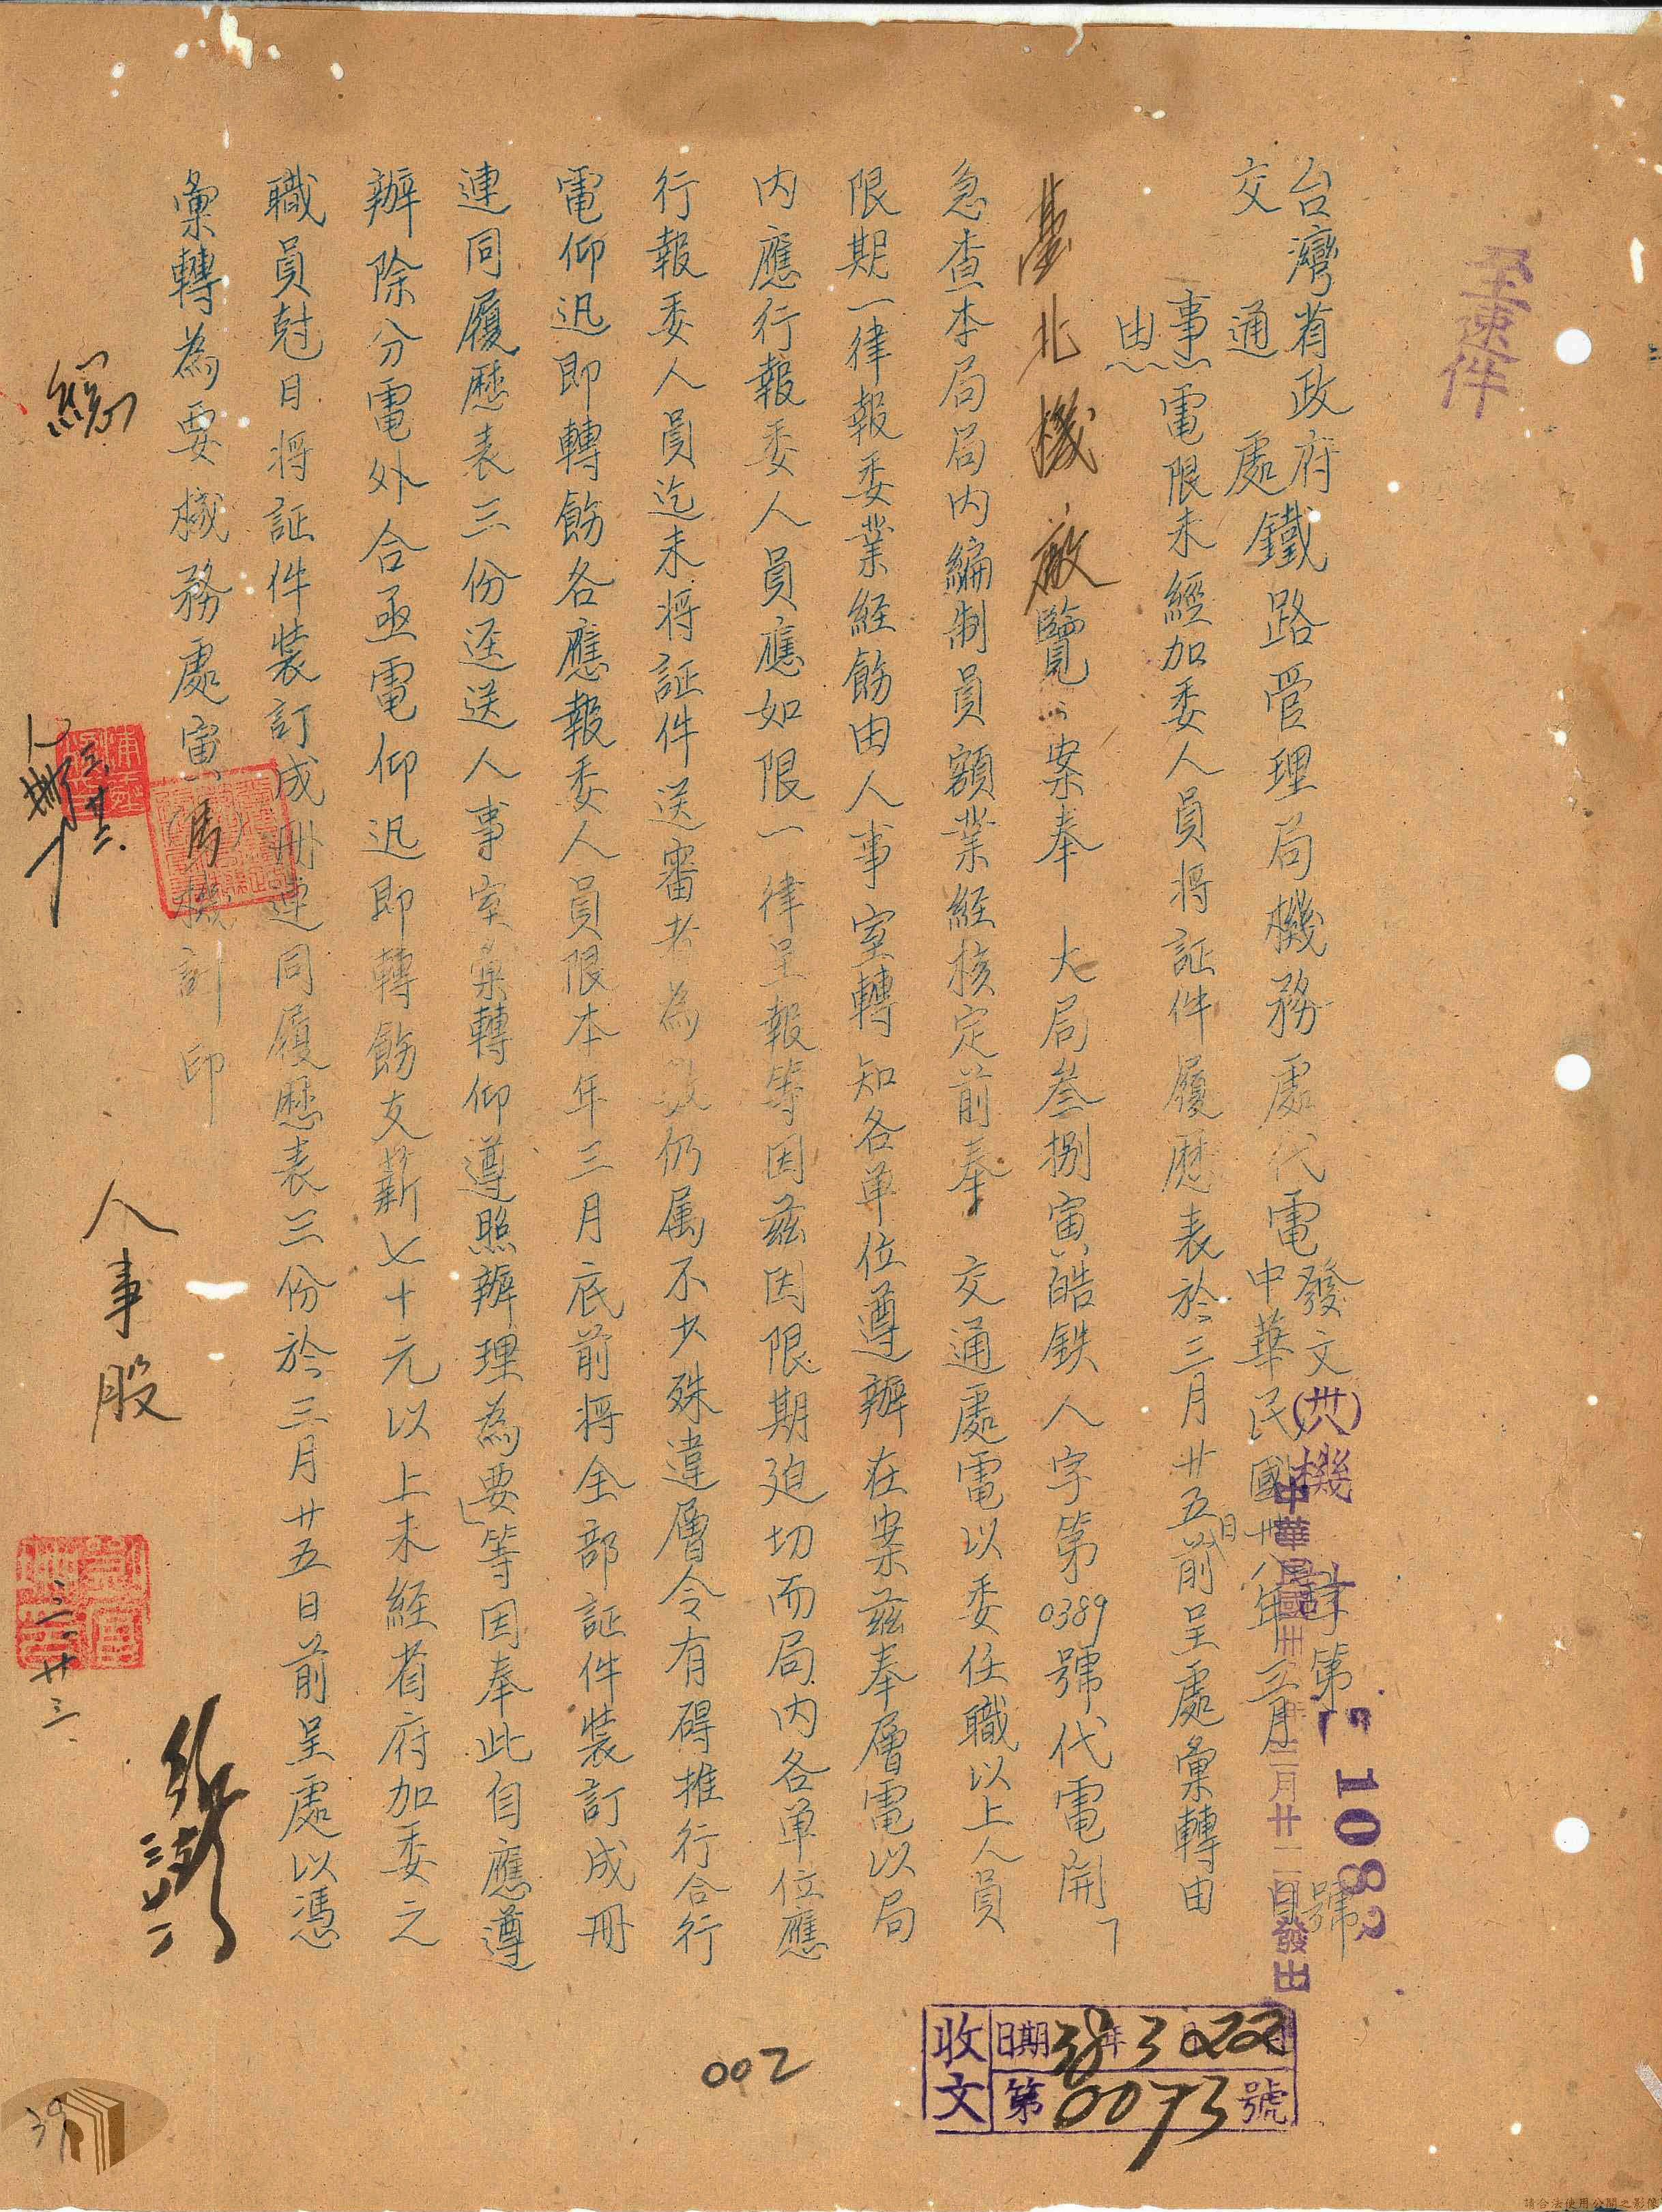 至速件
台灣省政府
交通處鐵路管理局機務處代電
發文(卅八)機計字第1082號
中華民國卅八年三月 日
中華民國卅 年三月廿二日發出
事由:電限未經加委人員將証件履歷表於三月廿五日前呈處彙轉由
臺北機廠覽:案奉 大局叁捌寅皓鉄人字第0389號代電開「
急查本局局内編制員額業經核定前奉 交通處電以委任職以上人員
限期一律報委業経飭由人事室轉知各单位遵辦在案兹奉層電以局
内應行報委人員應如限一律呈報等因兹因限期迫切而局内各单位應
行報委人員迄未将証件送審者為数仍属不少殊違層令有碍推行合行
電仰迅即轉飭各應報委人員限本年三月底前将全部証件裝訂成冊
連同履歷表三份逕送人事室彙轉仰遵照辦理為要」等因奉此自應遵
辦除分電外合亟電仰迅即轉飭支薪七十元以上未経省府加委之
職員尅日将証件裝訂成冊連同履歷表三份於三月廿五日前呈處以憑
彙轉為要機務處寅(馬)機計印
三.廿二.
人事股
三.廿三.
三.廿二
收文 日期 38年3月22日
第0073號
002
39
請合法使用公開之影像